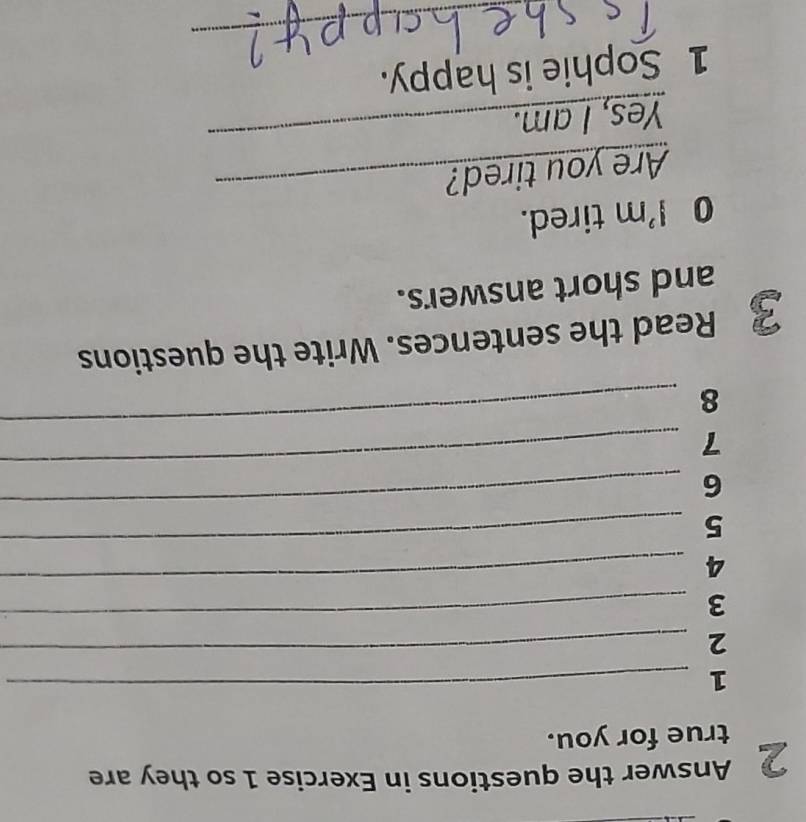 2 Answer the questions in Exercise 1 so they are
true for you.
1
2
3
4
5
6
7
8
3 Read the sentences. Write the questions
and short answers.
0 I'm tired.
Are you tired?
Yes, I am.
1 Sophie is happy.
Is she happy?